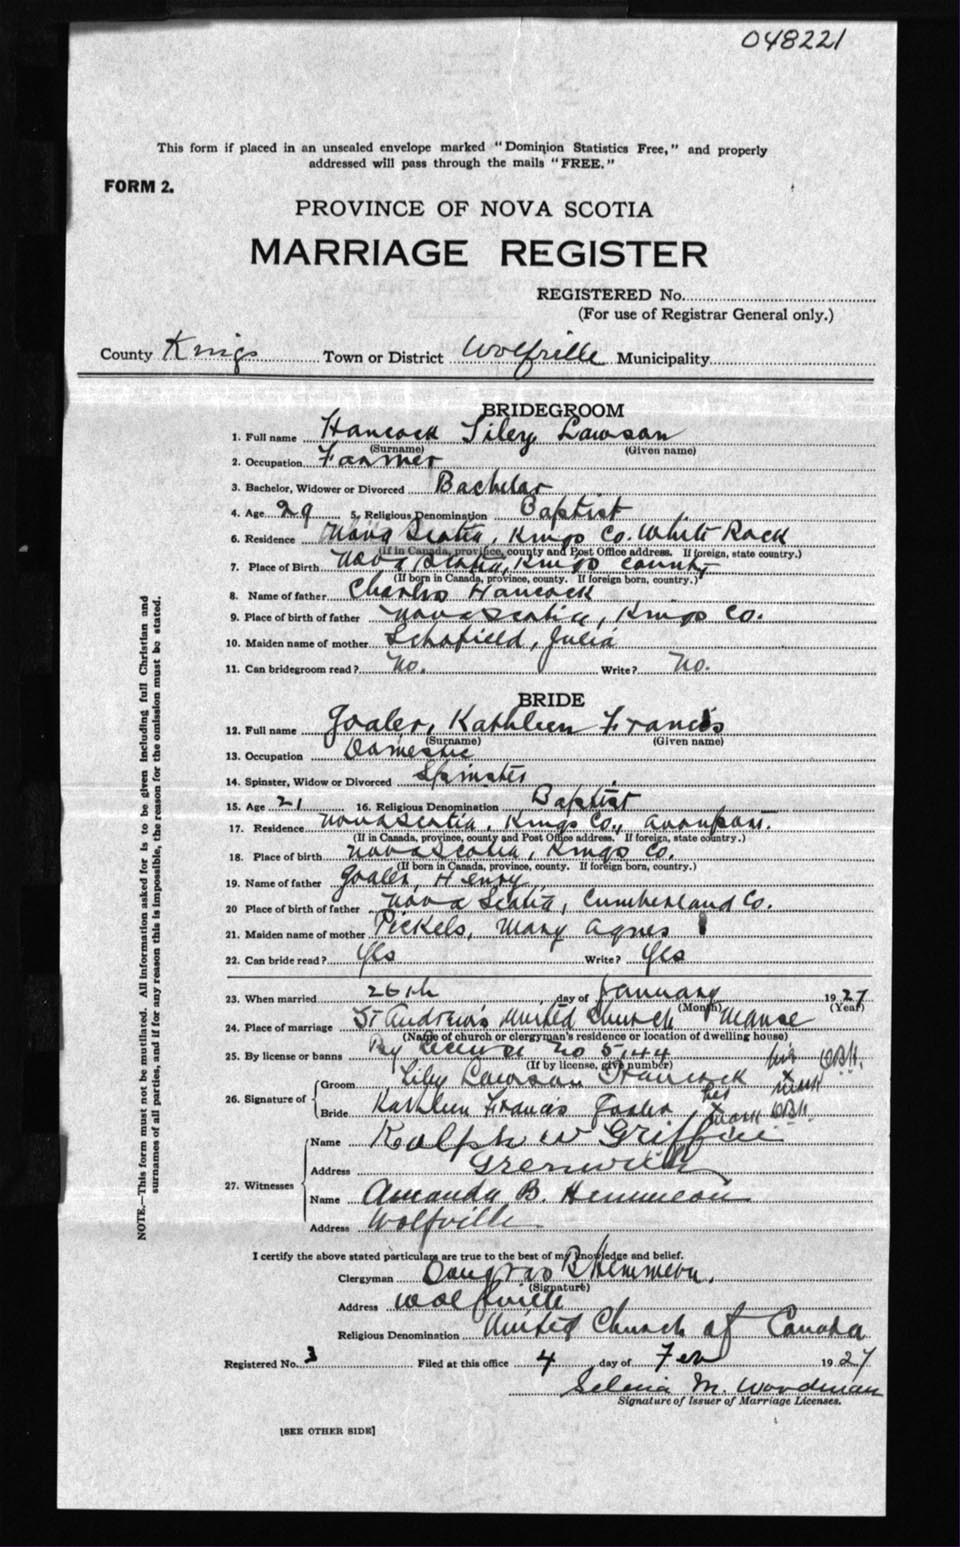 048221
This form if placed in an unsealed envelope marked "Dominion Statistics Free," and properly
addressed will pass through the mails "FREE."
FORM 2.
PROVINCE OF NOVA SCOTIA
MARRIAGE REGISTER
REGISTERED No.
(For use of Registrar General only.)
County Kings Town or District Wolfville Municipality
BRIDEGROOM
1. Full name Hancock Siley Lawson
(Surname) (Given name)
2. Occupation Farmer
3. Bachelor, Widower or Divorced Bachelor
4. Age 29 5. Religious Denomination Baptist
6. Residence Nova Scotia, Kings Co. White Rock
(If in Canada, province, county and Post Office address. If foreign, state country.)
7. Place of Birth Nova Scotia, Kings County
(If born in Canada, province, county. If foreign born, country.)
8. Name of father Charles Hancock
9. Place of birth of father Nova Scotia, Kings Co.
10. Maiden name of mother Schofield, Julia
11. Can bridegroom read? No. Write? No.
BRIDE
12. Full name Joaler, Kathleen Francis
(Surname) (Given name)
13. Occupation Domestic
14. Spinster, Widow or Divorced Spinster
15. Age 21 16. Religious Denomination Baptist
17. Residence Nova Scotia, Kings Co., Avonport.
(If in Canada, province, county and Post Office address. If foreign, state country.)
18. Place of birth Nova Scotia, Kings Co.
(If born in Canada, province, county. If foreign born, country.)
19. Name of father Joaler, Henry
20 Place of birth of father Nova Scotia, Cumberland Co.
21. Maiden name of mother Pickels, Mary Agnes
22. Can bride read? Yes Write? Yes
23. When married 26th day of January 1927
(Month) (Year)
24. Place of marriage St Andrew's United Church Manse
(Name of church or clergyman's residence or location of dwelling house)
25. By license or banns By license no 5144
(If by license, give number)
his DBH.
26. Signature of Groom Siley Lawson Hancock x mark
her
Bride Kathleen Francis Joaler x mark DBH.
27. Witnesses Name Ralph W Griffin
Address Grenwich
Name Amanda B. Hemmeon
Address Wolfville
I certify the above stated particulars are true to the best of my knowledge and belief.
Clergyman Douglas B Hemmeon.
(Signature)
Address Wolfville
Religious Denomination United Church of Canada
Registered No. 3 Filed at this office 4 day of Feb 1927
Selena M. Woodman
Signature of Issuer of Marriage Licenses.
[SEE OTHER SIDE]
NOTE.—This form must not be mutilated. All information asked for is to be given including full Christian and
surnames of all parties, and if for any reason this is impossible, the reason for the omission must be stated.